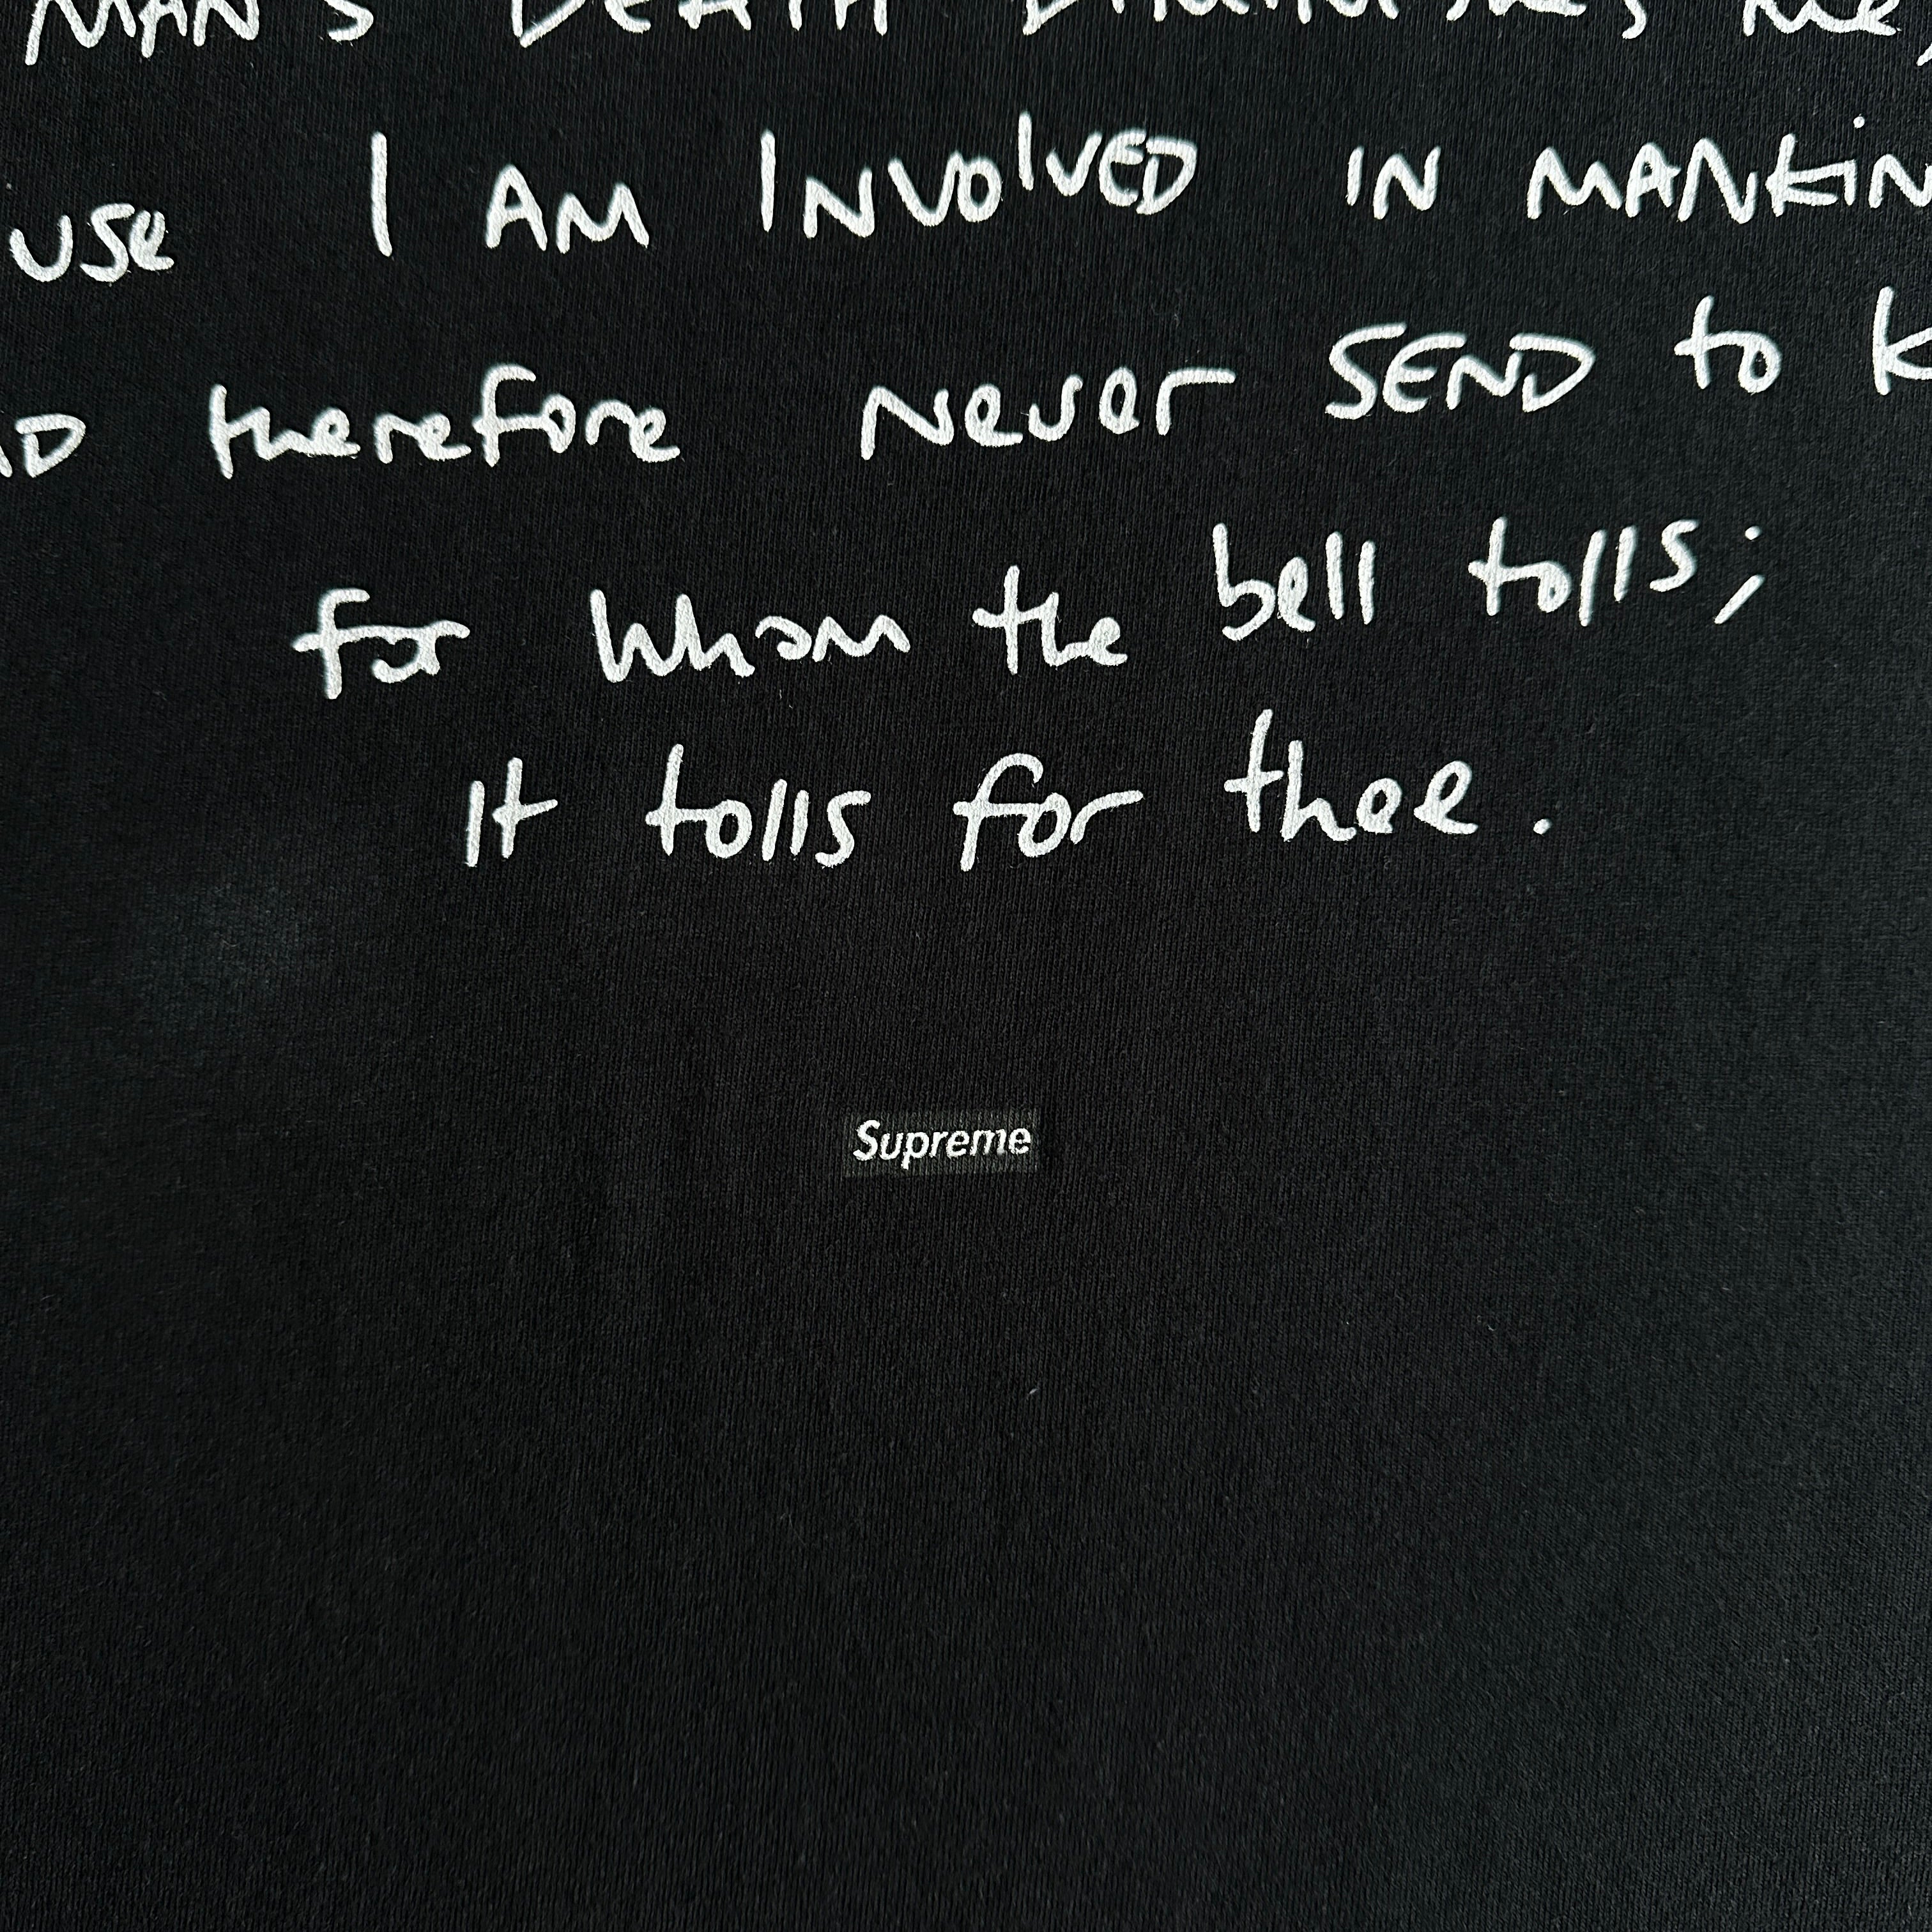 MAN'S DEATH DIMINISHES ME,
USE I AM INVOLVED IN MANKIN
ND therefore never SEND to K
for whom the bell tolls;
It tolls for thee.
Supreme